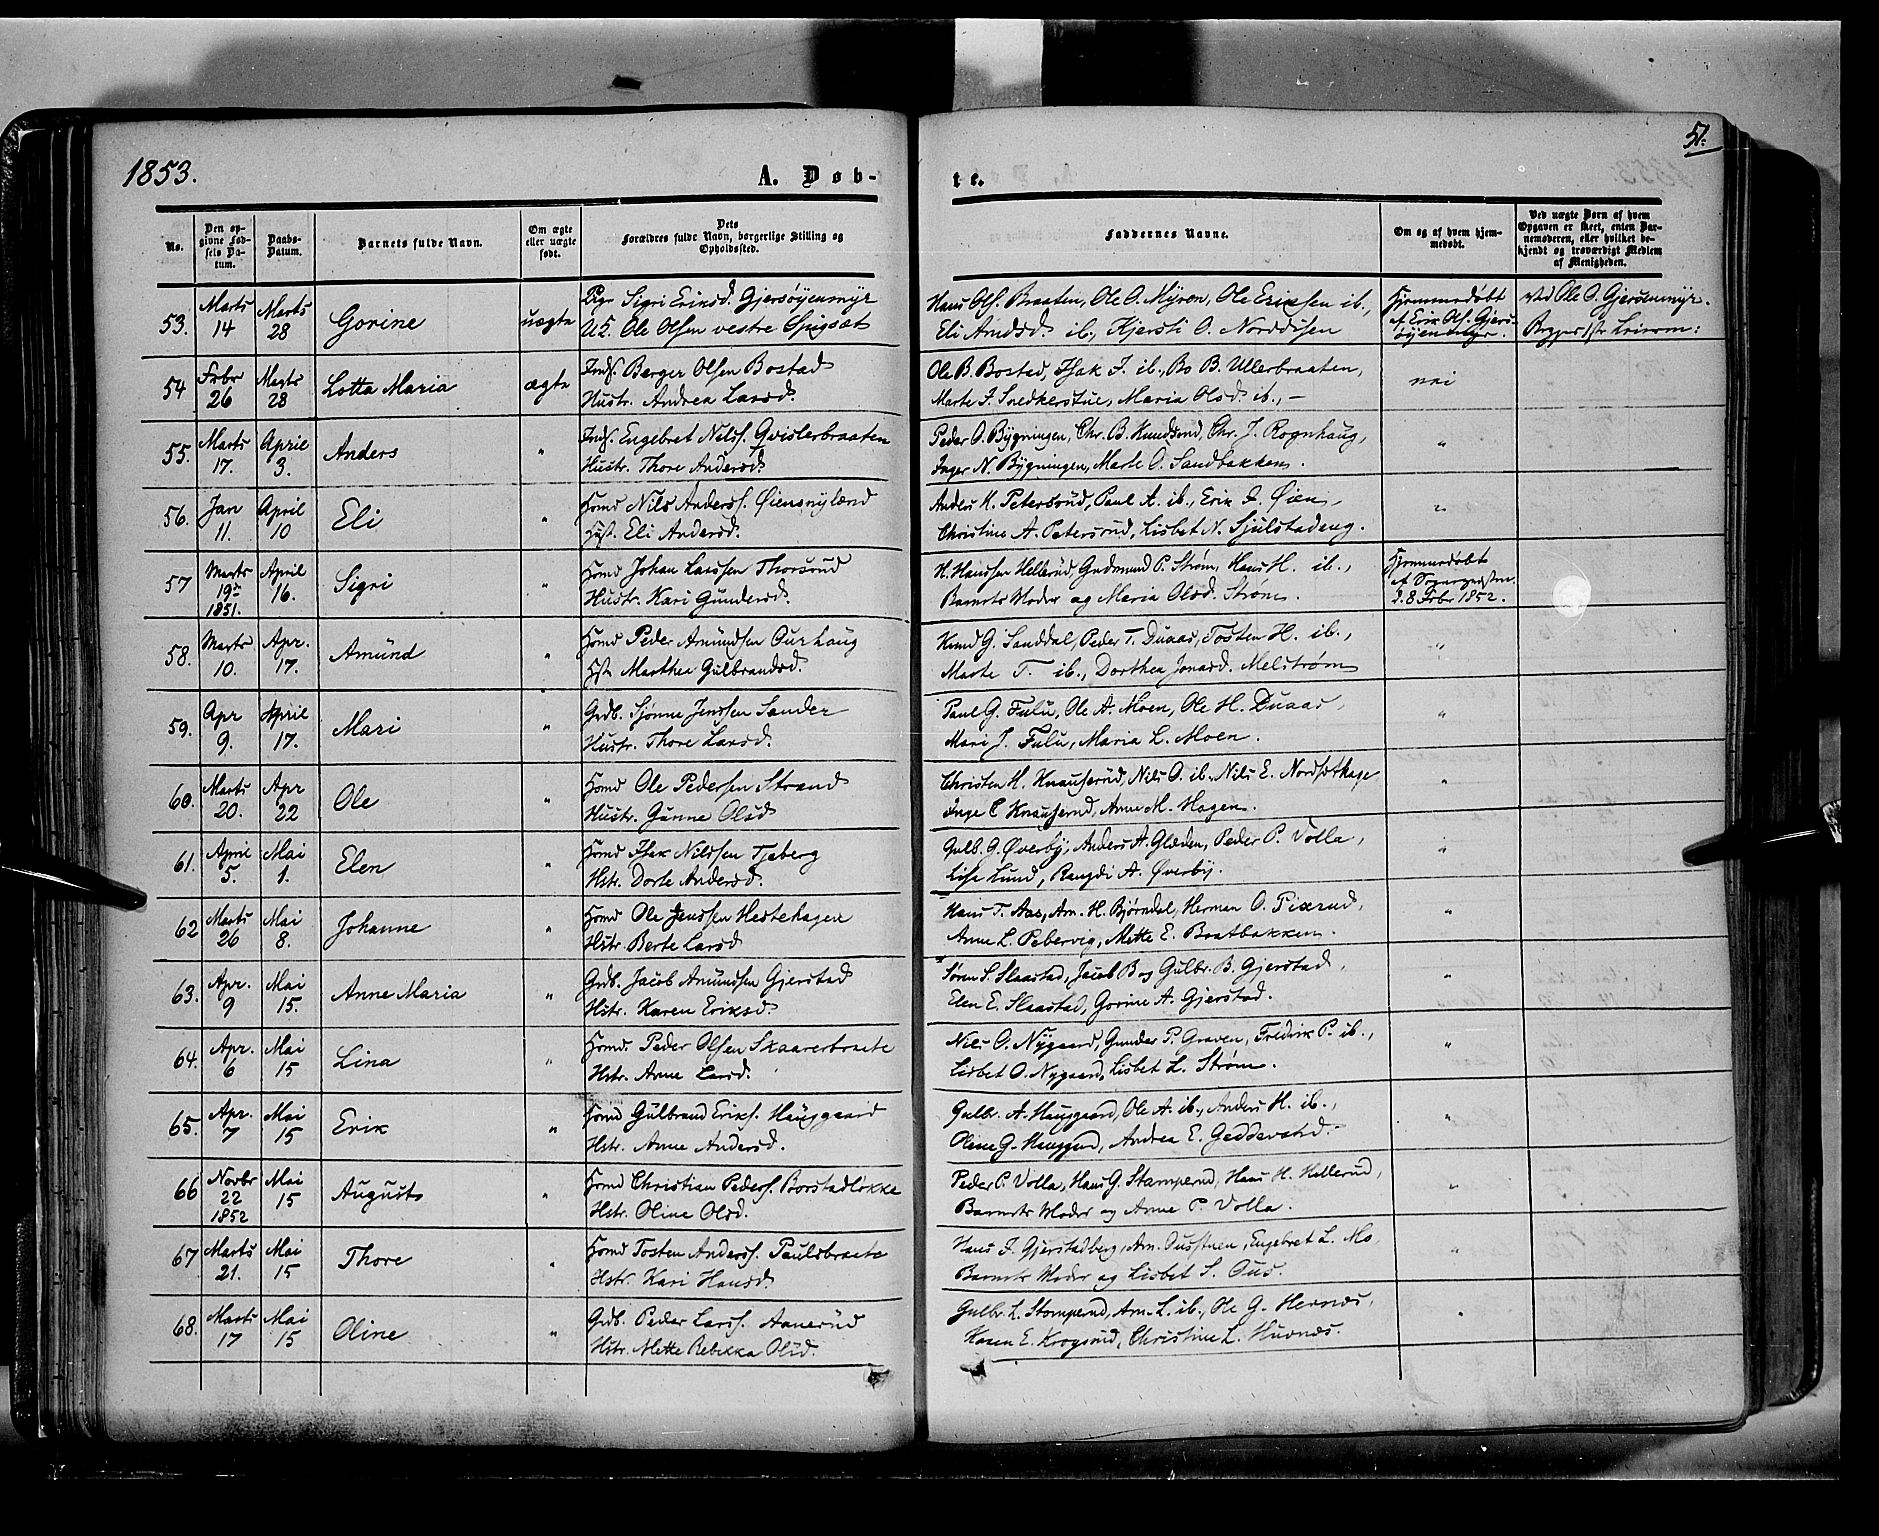 1853.
A. Døb-
te.
51.
No.
Den op-
givne Fød-
sels Da-
tum.
Daabs-
Datum.
Barnets fulde Navn.
Om ægte
eller uægte
født.
Dets
Forældres fulde Navn, borgerlige Stilling og
Opholdssted.
Faddernes Navne.
Om og af hvem hjem-
medøbt.
Ved uægte Børn af hvem
Opgaven er skeet, enten Bar-
nemoderen, eller hvilket be-
kjendt og troværdigt Medlem
af Menigheden.
53. Marts 14 Marts 28 Gorine uægte
Pige Sigri Eriksd. Gjersøyenmyr
U.K. Ole Olsen vestre Spigset
Hans Ols. Braaten, Ole O. Myren, Ole Eriksen ib.,
Eli Arndsd. ib., Kjersti O. Norddisen
Hjemmedøbt
af Erik Ols. Gjers-
øyenmyr.
ved Ole O. Gjersøenmyr.
54 Febr 26 Marts 28 Lotta Maria ægte
Inds. Berger Olsen Bostad
Hustr. Andrea Larsd.
Ole B. Bostad, Isak J. ib., Bo B. Ullerbraaten,
Marte J. Snedkerstue, Maria Olsd. ib., –
nei
55. Marts 17. April 3. Anders "
Inds. Engebret Nils. Qvislerbraaten
Hustr. Thore Andersd.
Peder O. Bygningen, Chr. B. Knudsrud, Chr. J. Rognhaug,
Inger N. Bygningen, Marte O. Sandbakken.
"
56. Jan 11. April 10 Eli "
Hmd Nils Anders. Øiensnyland
Hst. Eli Andersd.
Anders K. Petersrud, Paul A. ib., Erik J. Øien,
Christine A. Petersrud, Lisbet N. Sjulstadeng.
"
57 Marts 19de 1851. April 16. Sigri "
Hmd Johan Larssen Thorsrud
Hustr. Kari Gundersd.
H. Hanssen Hellerud, Gudmund P. Strøm, Hans H. ib.,
Barnets Moder og Maria Olsd. Strøm.
Hjemmedøbt
af Sognepresten
d. 8 Febr 1852.
58. Marts 10. Apr. 17. Amund "
Hmd Peder Amundsen Aurhaug
Hst. Marthea Gulbrandsd.
Knud G. Sanddal, Peder T. Duaas, Tosten H. ib.,
Marte T. ib., Dorthea Jonasd. Melstrøm
"
59. Apr 9. April 17. Mari "
Grdb. Sjønne Jenssen Sander
Hustr. Thore Larsd.
Paul G. Fulu, Ole A. Moen, Ole H. Duaas,
Mari J. Fulu, Maria L. Moen.
"
60. Marts 20. Apr 22 Ole "
Hmd Ole Pedersen Strand
Hustr. Gunne Olsd
Christen H. Knauserud, Nils O. ib., Nils E. Nordsethage
Inge C Knauserud, Anne M. Hagen.
"
61. April 5. Mai 1. Elen "
Hmd Isak Nilssen Tjeberg
Hstr. Dorte Andersd.
Gulb. G. Øverby, Anders A. Glæden, Peder P. Volla,
Lise Lund, Rangdi A. Øverby.
"
62 Marts 26 Mai 8. Johanne "
Hmd Ole Jenssen Hestehagen
Hstr Berte Larsd
Hans T. Aas, Am. H. Bjørndal, Herman O. Pixrud,
Anne L. Pebervig, Mette E. Braatbakken.
"
63. Apr. 9 Mai 15. Anne Maria "
Grdb. Jacob Amundsen Gjerstad
Hstr. Karen Eriksd
Søren S. Slaastad, Jacob B og Gulbr. B. Gjerstad,
Elen E. Slaastad, Gorine A. Gjerstad.
"
64. Apr. 6 Mai 15 Lina "
Hmd. Peder Olsen Skaarerbraate
Hstr. Anne Larsd.
Nils O. Nygaard, Gunder P. Graven, Fredrik P. ib.,
Lisbet O. Nygaard, Lisbet L. Strøm.
"
65. Apr. 7 Mai 15 Erik "
Hmd Gulbrand Eriks. Hauggaard
Hstr. Anne Andersd.
Gulbr. A. Hauggaard, Ole A. ib., Anders H. ib.,
Olene G. Hauggrd, Andrea E. Geddevand.
"
66 Novbr 22 1852 Mai 15 Augusta "
Hmd Christian Peders. Borstadløkke
Hstr. Oline Olsd.
Peder P. Volla, Hans G. Stamperud, Hans H. Hellerud,
Barnets Moder og Anne P. Volla.
"
67 Marts 21. Mai 15 Thore "
Hmd Tosten Anders. Paulsbraate
Hstr. Kari Hansd.
Hans J. Gjerstadberg, Am. Ousstuen, Engebret L. Mo,
Barnets Moder og Lisbet S. Ous.
"
68. Marts 17 Mai 15 Oline "
Grdb. Peder Lars. Aanerud
Hstr. Mette Rebekka Olsd.
Gulbr. L. Stamperud, Am. L. ib., Ole G. Hernæs,
Karen E. Krogsrud, Christine L. Huvnæs.
"